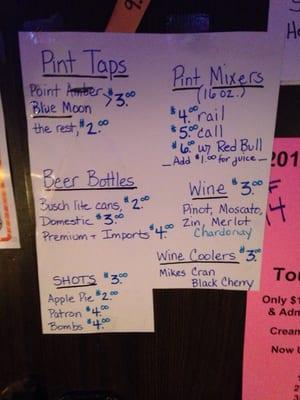 Pint Taps
Point Amber
Blue Moon > $3.00
the rest, $2.00
Pint Mixers
(16 oz.)
$4.00 rail
$5.00 call
$6.00 w/ Red Bull
Add $1.00 for juice
Beer Bottles
Busch lite cans, $2.00
Domestic $3.00
Premium + Imports $4.00
Wine $3.00
Pinot, Moscato,
Zin, Merlot
Chardonay
Wine Coolers $3.00
Mikes Cran
Black Cherry
SHOTS $3.00
Apple Pie $2.00
Patron $4.00
Bombs $4.00
9.
201
Only $1
& Adm
Cream
Now